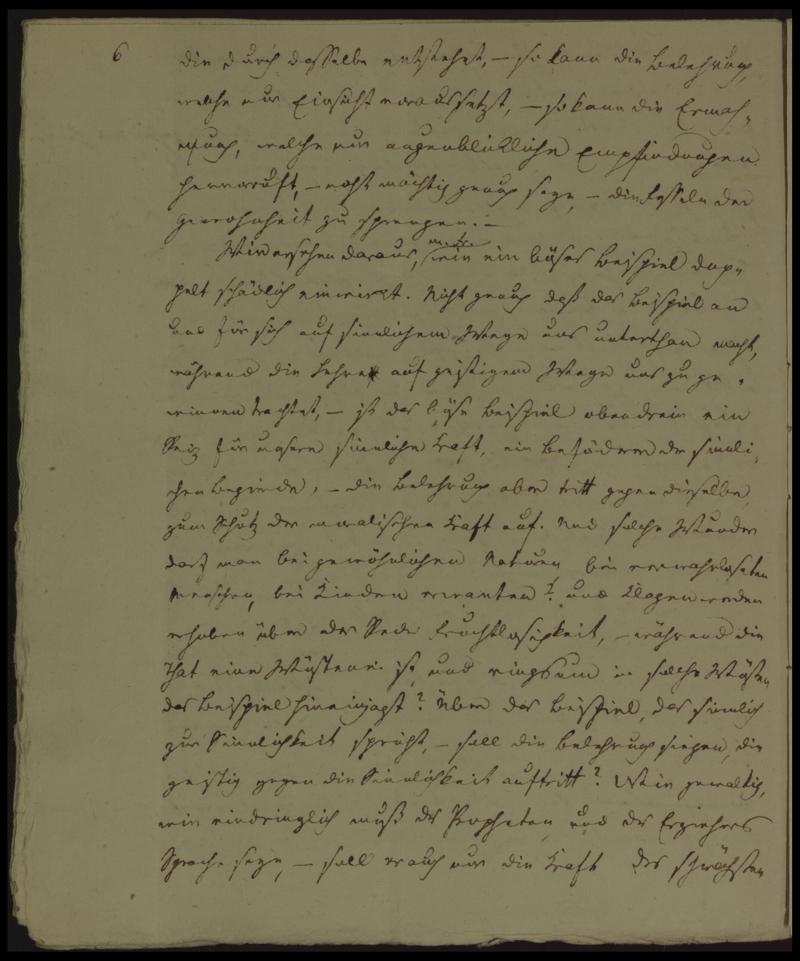 6
die durch dasselbe entstehet, – so kann die Belehrung,
welche nur Einsicht voraussetzt, – so kann die Ermah-
nung, welche nur augenblickliche Empfindungen
hervorruft, – nicht mächtig genug seyn, – die Fesseln der
Gewohnheit zu sprengen. –
Wir ersehen daraus, wie ein böses Beispiel dop-
pelt schädlich einwirkt. Nicht genug daß das Beispiel an
und für sich auf sinnlichem Wege uns unterthan macht,
während die Lehre auf geistigem Wege uns zu ge-
winnen trachtet, – ist das böse Beispiel obendrein ein
Reiz für unsere sinnliche Kraft, ein Beförderer der sinnli-
chen Begierde, – die Belehrung aber tritt gegen dieselbe
zum Schutz der moralischen Kraft auf. Und solche Wunder
darf man bei gewöhnlichen Naturen bei verwahrlosten
Menschen, bei Kindern erwarten? und Klagen werden
erhoben über der Rede Fruchtlosigkeit, – während die
That eine Wüstenei ist und ringsum in solche Wüsten
das Beispiel hineinjagt? Über das Beispiel, das sinnlich
zur Sinnlichkeit spricht, – soll die Belehrung siegen, die
geistig gegen die Sinnlichkeit auftritt? Wie gewaltig,
wie eindringlich muß des Propheten und des Erziehers
Sprache seyn, – soll er auch nur die Kraft des schwächsten